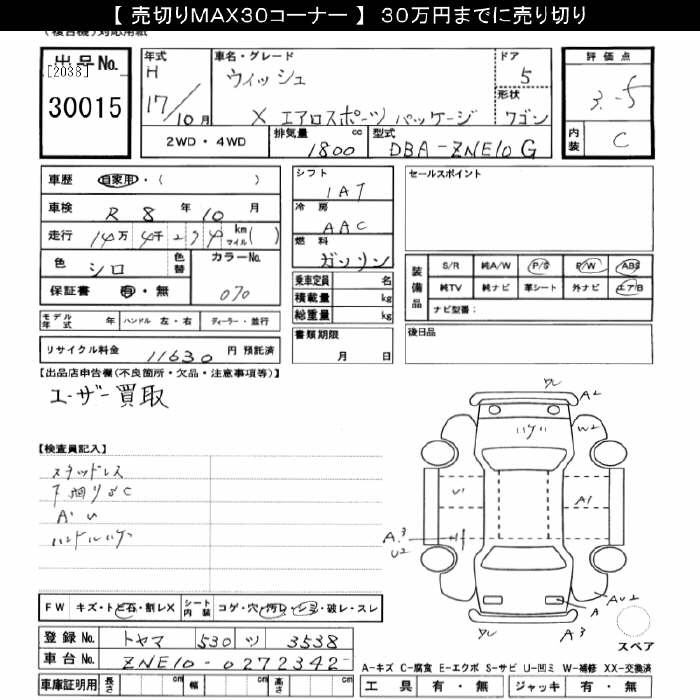 【 売切りMAX30コーナー 】 30万円までに売り切り
(複合機)対応用紙
出品No. [2038] 30015
年式 H 17/10月
車名・グレード ウィッシュ
X エアロスポーツ パッケージ
ドア 5
形状 ワゴン
評価点 3.5
内装 C
2WD・4WD 排気量 1800 cc 型式 DBA-ZNE10G
車歴 自家用・( )
車検 R 8 年 10 月
走行 14万 4千 2 9 4 km マイル( )
色 シロ 色替 カラーNo. 070
保証書 有・無
モデル年式 年 ハンドル 左・右 ディーラー・並行
リサイクル料金 11630 円 預託済
シフト 1AT
冷房 AAC
燃料 ガソリン
乗車定員 名
積載量 kg
総重量 kg
書類期限 月 日
セールスポイント
装備品 S/R 純A/W P/S P/W ABS
純TV 純ナビ 革シート 外ナビ エアB
ナビ型番:
後日品
【出品店申告欄(不良箇所・欠品・注意事項等)】
ユーザー買取
【検査員記入】
スタッドレス
下廻りSC
A・U
ハンドルハゲ
FW キズ・トビ石・割レX シート内装 コゲ・穴・汚レ・シミ・破レ・スレ
登録No. トヤマ 530 ツ 3538
車台No. ZNE10-0272342
車庫証明用 長さ cm 幅 cm 高さ cm
ワレ A2
ハゲ W2
U1 A1
A3 U2
AU2
A
ワレ A3
スペア
A-キズ C-腐食 E-エクボ S-サビ U-凹ミ W-補修 XX-交換済
工具 有・無 ジャッキ 有・無